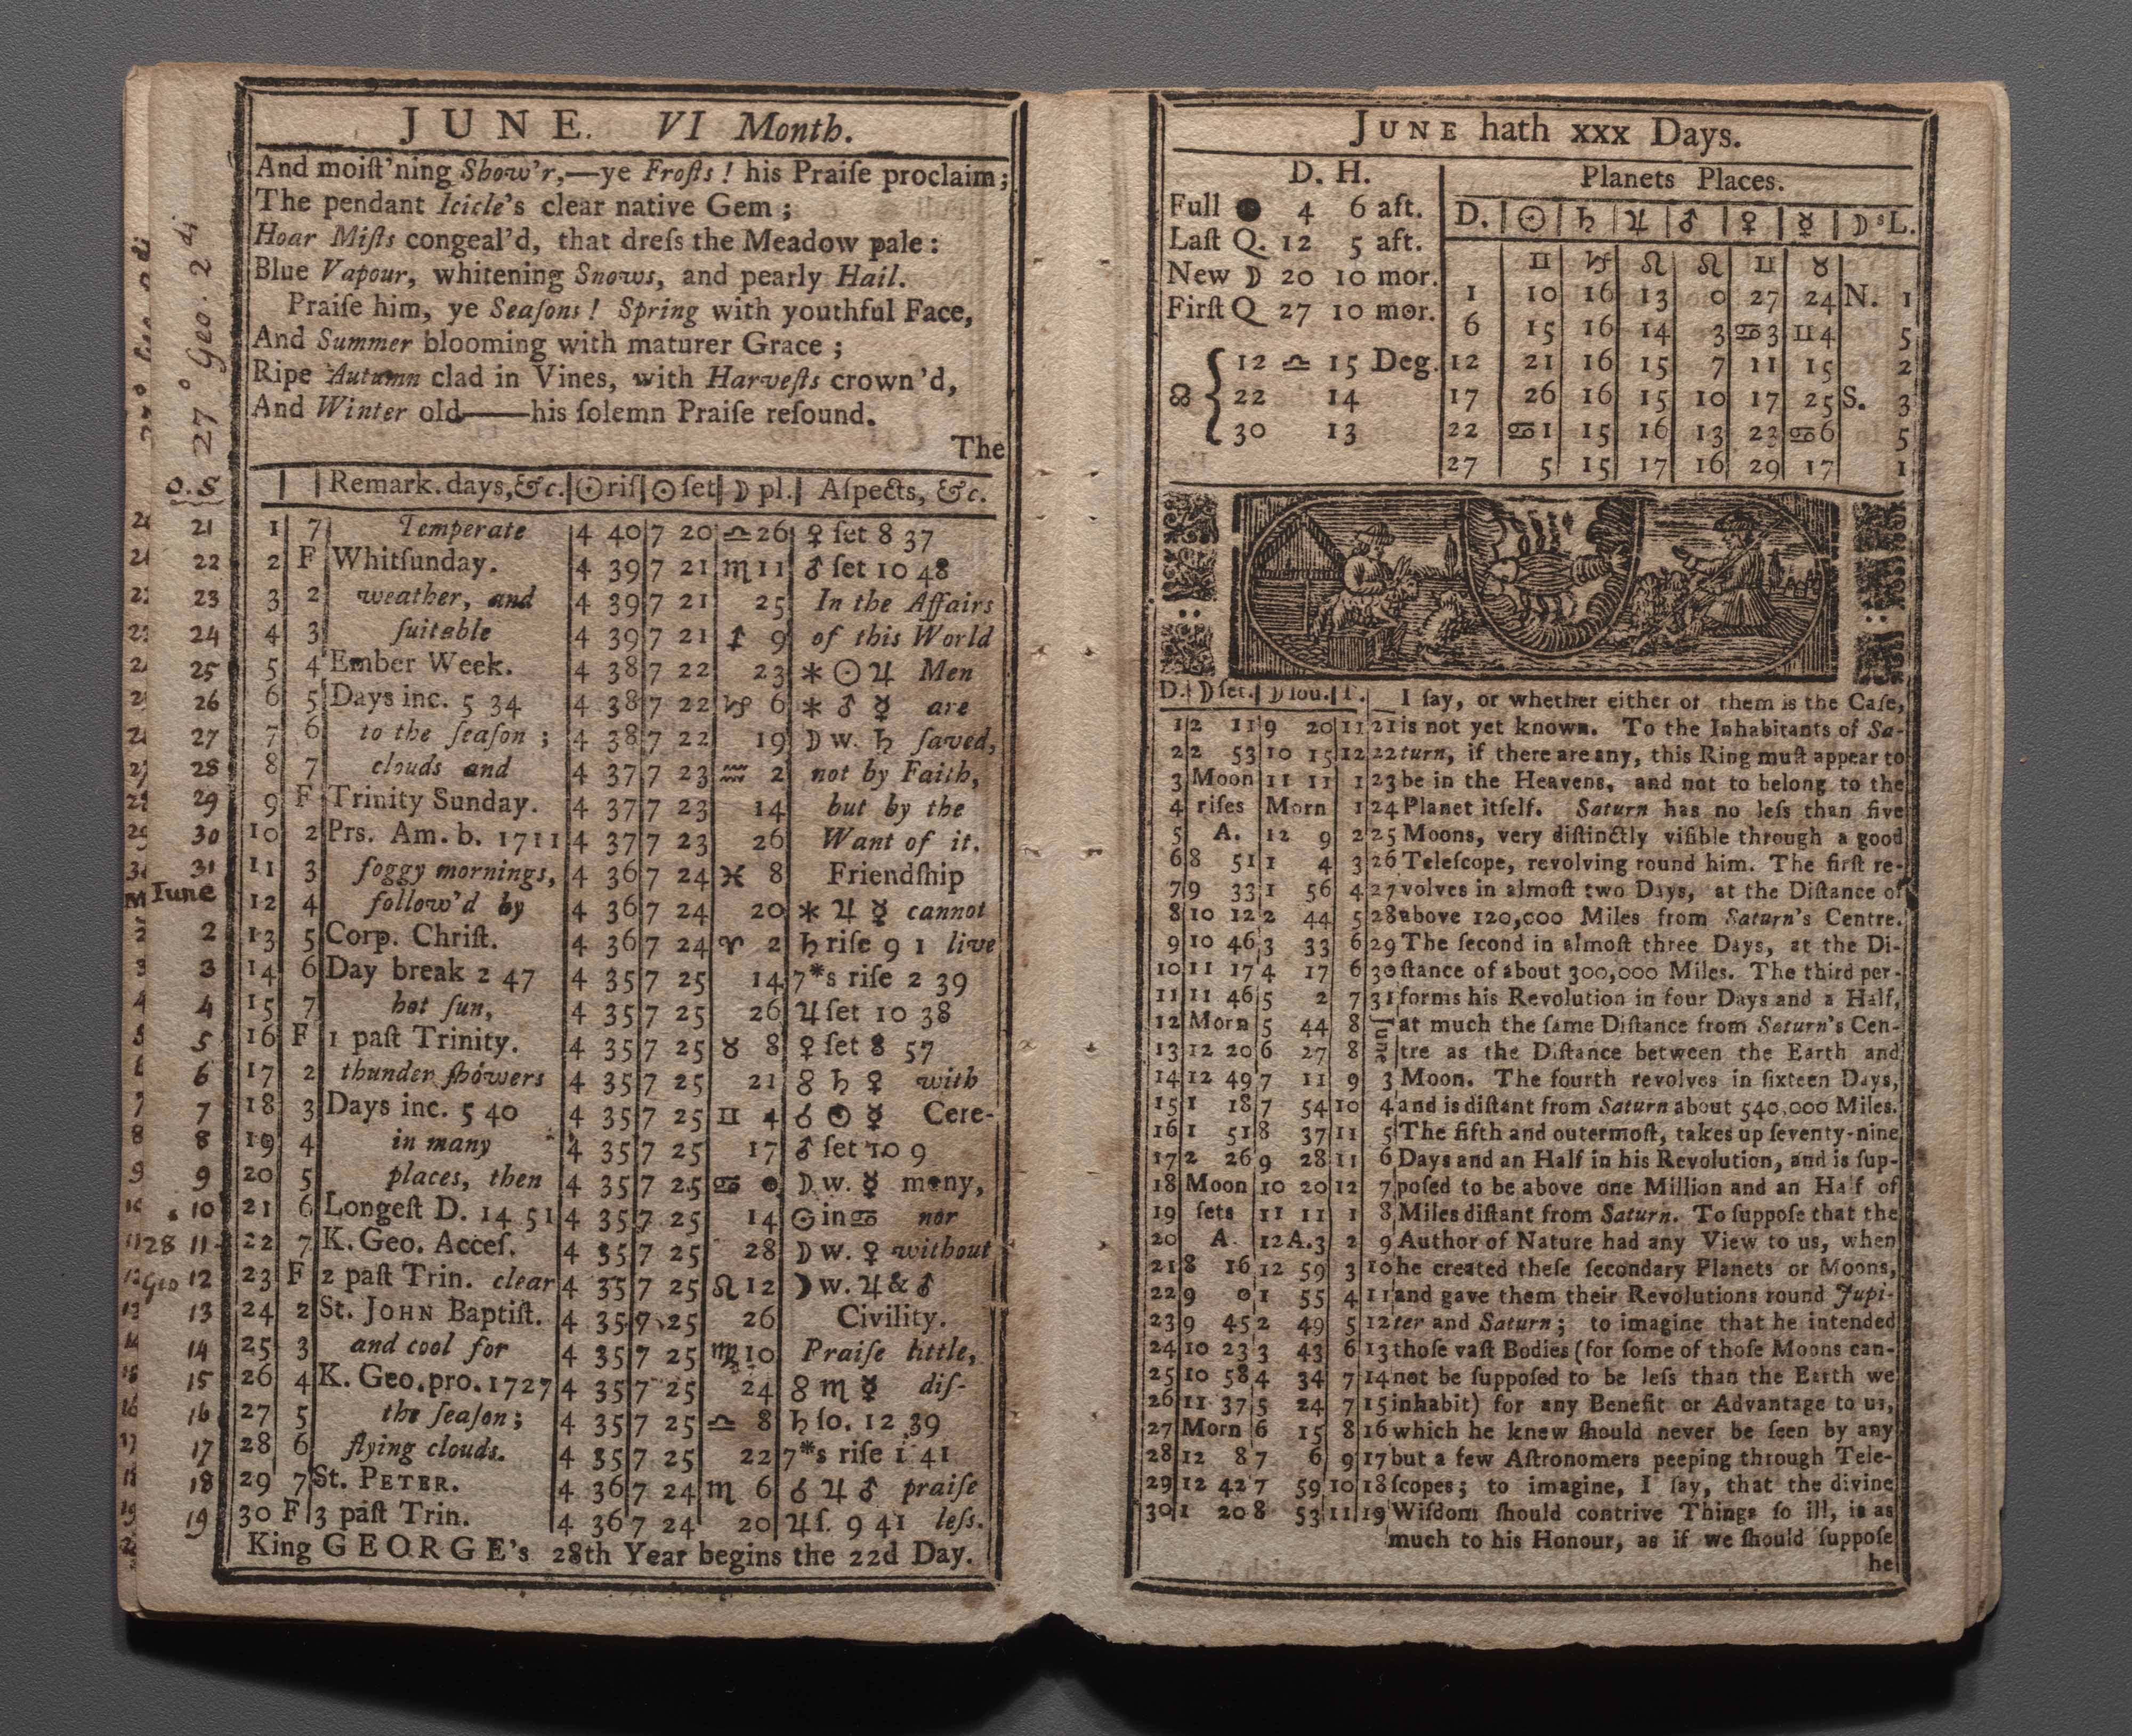 JUNE. VI Month.
And moiſt'ning Show'r,—ye Froſts! his Praiſe proclaim;
The pendant Icicle's clear native Gem;
Hoar Miſts congeal'd, that dreſs the Meadow pale:
Blue Vapour, whitening Snows, and pearly Hail.
Praiſe him, ye Seaſons! Spring with youthful Face,
And Summer blooming with maturer Grace;
Ripe Autumn clad in Vines, with Harveſts crown'd,
And Winter old——his ſolemn Praiſe reſound.
The
27° Geo. 2di
O.S Remark. days, &c. ☉riſ ☉ſet ☽ pl. Aſpects, &c.
21 1 7 Temperate 4 40 7 20 ♎ 26 ♀ ſet 8 37
22 2 F Whitſunday. 4 39 7 21 ♏ 11 ♂ ſet 10 48
23 3 2 weather, and 4 39 7 21 25 In the Affairs
24 4 3 ſuitable 4 39 7 21 ♐ 9 of this World
25 5 4 Ember Week. 4 38 7 22 23 ⚹ ☉ ♃ Men
26 6 5 Days inc. 5 34 4 38 7 22 ♑ 6 ⚹ ♂ ☿ are
27 7 6 to the ſeaſon; 4 38 7 22 19 ☽ w. ♄ ſaved,
28 8 7 clouds and 4 37 7 23 ♒ 2 not by Faith,
29 9 F Trinity Sunday. 4 37 7 23 14 but by the
30 10 2 Prs. Am. b. 1711 4 37 7 23 26 Want of it.
31 11 3 foggy mornings, 4 36 7 24 ♓ 8 Friendſhip
June 12 4 follow'd by 4 36 7 24 20 ⚹ ♃ ☿ cannot
2 13 5 Corp. Chriſt. 4 36 7 24 ♈ 2 ♄ riſe 9 1 live
3 14 6 Day break 2 47 4 35 7 25 14 7*s riſe 2 39
4 15 7 hot ſun, 4 35 7 25 26 ♃ ſet 10 38
5 16 F 1 paſt Trinity. 4 35 7 25 ♉ 8 ♀ ſet 8 57
6 17 2 thunder ſhowers 4 35 7 25 21 ☍ ♄ ♀ with
7 18 3 Days inc. 5 40 4 35 7 25 ♊ 4 ☌ ☉ ☿ Cere-
8 19 4 in many 4 35 7 25 17 ♂ ſet 10 9
9 20 5 places, then 4 35 7 25 ♋ 0 ☽ w. ☿ mony,
10 21 6 Longeſt D. 14 51 4 35 7 25 14 ☉ in ♋ nor
28 11 22 7 K. Geo. Acceſ. 4 35 7 25 28 ☽ w. ♀ without
Geo 12 23 F 2 paſt Trin. clear 4 35 7 25 ♌ 12 ☽ w. ♃ & ♂
13 24 2 St. JOHN Baptiſt. 4 35 7 25 26 Civility.
14 25 3 and cool for 4 35 7 25 ♍ 10 Praiſe little,
15 26 4 K. Geo. pro. 1727 4 35 7 25 24 ☍ ♏ ☿ diſ-
16 27 5 the ſeaſon; 4 35 7 25 ♎ 8 ♄ ſo. 12 39
17 28 6 flying clouds. 4 35 7 25 22 7*s riſe 1 41
18 29 7 St. PETER. 4 36 7 24 ♏ 6 ☌ ♃ ♂ praiſe
19 30 F 3 paſt Trin. 4 36 7 24 20 ♃ ſ. 9 41 leſs.
King GEORGE's 28th Year begins the 22d Day.
JUNE hath xxx Days.
D. H.
Full ● 4 6 aft.
Laſt Q. 12 5 aft.
New ☽ 20 10 mor.
Firſt Q 27 10 mor.
☊ { 12 ♎ 15 Deg.
22 14
30 13
Planets Places.
D. ☉ ♄ ♃ ♂ ♀ ☿ ☽'s L.
♊ ♑ ♌ ♌ ♊ ♉
1 10 16 13 0 27 24 N. 1
6 15 16 14 3 ♋3 ♊4 5
12 21 16 15 7 11 15 2
17 26 16 15 10 17 25 S. 3
22 ♋1 15 16 13 23 ♋6 5
27 5 15 17 16 29 17 1
D. ☽ ſet. ☽ ſou. T. I ſay, or whether either of them is the Caſe,
1 2 11 9 20 11 21 is not yet known. To the Inhabitants of Sa-
2 2 53 10 15 12 22 turn, if there are any, this Ring muſt appear to
3 Moon 11 11 1 23 be in the Heavens, and not to belong to the
4 riſes Morn 1 24 Planet itſelf. Saturn has no leſs than five
5 A. 12 9 2 25 Moons, very diſtinctly viſible through a good
6 8 51 1 4 3 26 Teleſcope, revolving round him. The firſt re-
7 9 33 1 56 4 27 volves in almoſt two Days, at the Diſtance of
8 10 12 2 44 5 28 above 120,000 Miles from Saturn's Centre.
9 10 46 3 33 6 29 The ſecond in almoſt three Days, at the Di-
10 11 17 4 17 6 30 ſtance of about 300,000 Miles. The third per-
11 11 46 5 2 7 31 forms his Revolution in four Days and a Half,
12 Morn 5 44 8 June at much the ſame Diſtance from Saturn's Cen-
13 12 20 6 27 8 tre as the Diſtance between the Earth and
14 12 49 7 11 9 3 Moon. The fourth revolves in ſixteen Days,
15 1 18 7 54 10 4 and is diſtant from Saturn about 540,000 Miles.
16 1 51 8 37 11 5 The fifth and outermoſt, takes up ſeventy-nine
17 2 26 9 28 11 6 Days and an Half in his Revolution, and is ſup-
18 Moon 10 20 12 7 poſed to be above one Million and an Half of
19 ſets 11 11 1 8 Miles diſtant from Saturn. To ſuppoſe that the
20 A. 12A.3 2 9 Author of Nature had any View to us, when
21 8 16 12 59 3 10 he created theſe ſecondary Planets or Moons,
22 9 0 1 55 4 11 and gave them their Revolutions round Jupi-
23 9 45 2 49 5 12 ter and Saturn; to imagine that he intended
24 10 23 3 43 6 13 thoſe vaſt Bodies (for ſome of thoſe Moons can-
25 10 58 4 34 7 14 not be ſuppoſed to be leſs than the Earth we
26 11 37 5 24 7 15 inhabit) for any Benefit or Advantage to us,
27 Morn 6 15 8 16 which he knew ſhould never be ſeen by any
28 12 8 7 6 9 17 but a few Aſtronomers peeping through Tele-
29 12 42 7 59 10 18 ſcopes; to imagine, I ſay, that the divine
30 1 20 8 53 11 19 Wiſdom ſhould contrive Things ſo ill, is as
much to his Honour, as if we ſhould ſuppoſe
he